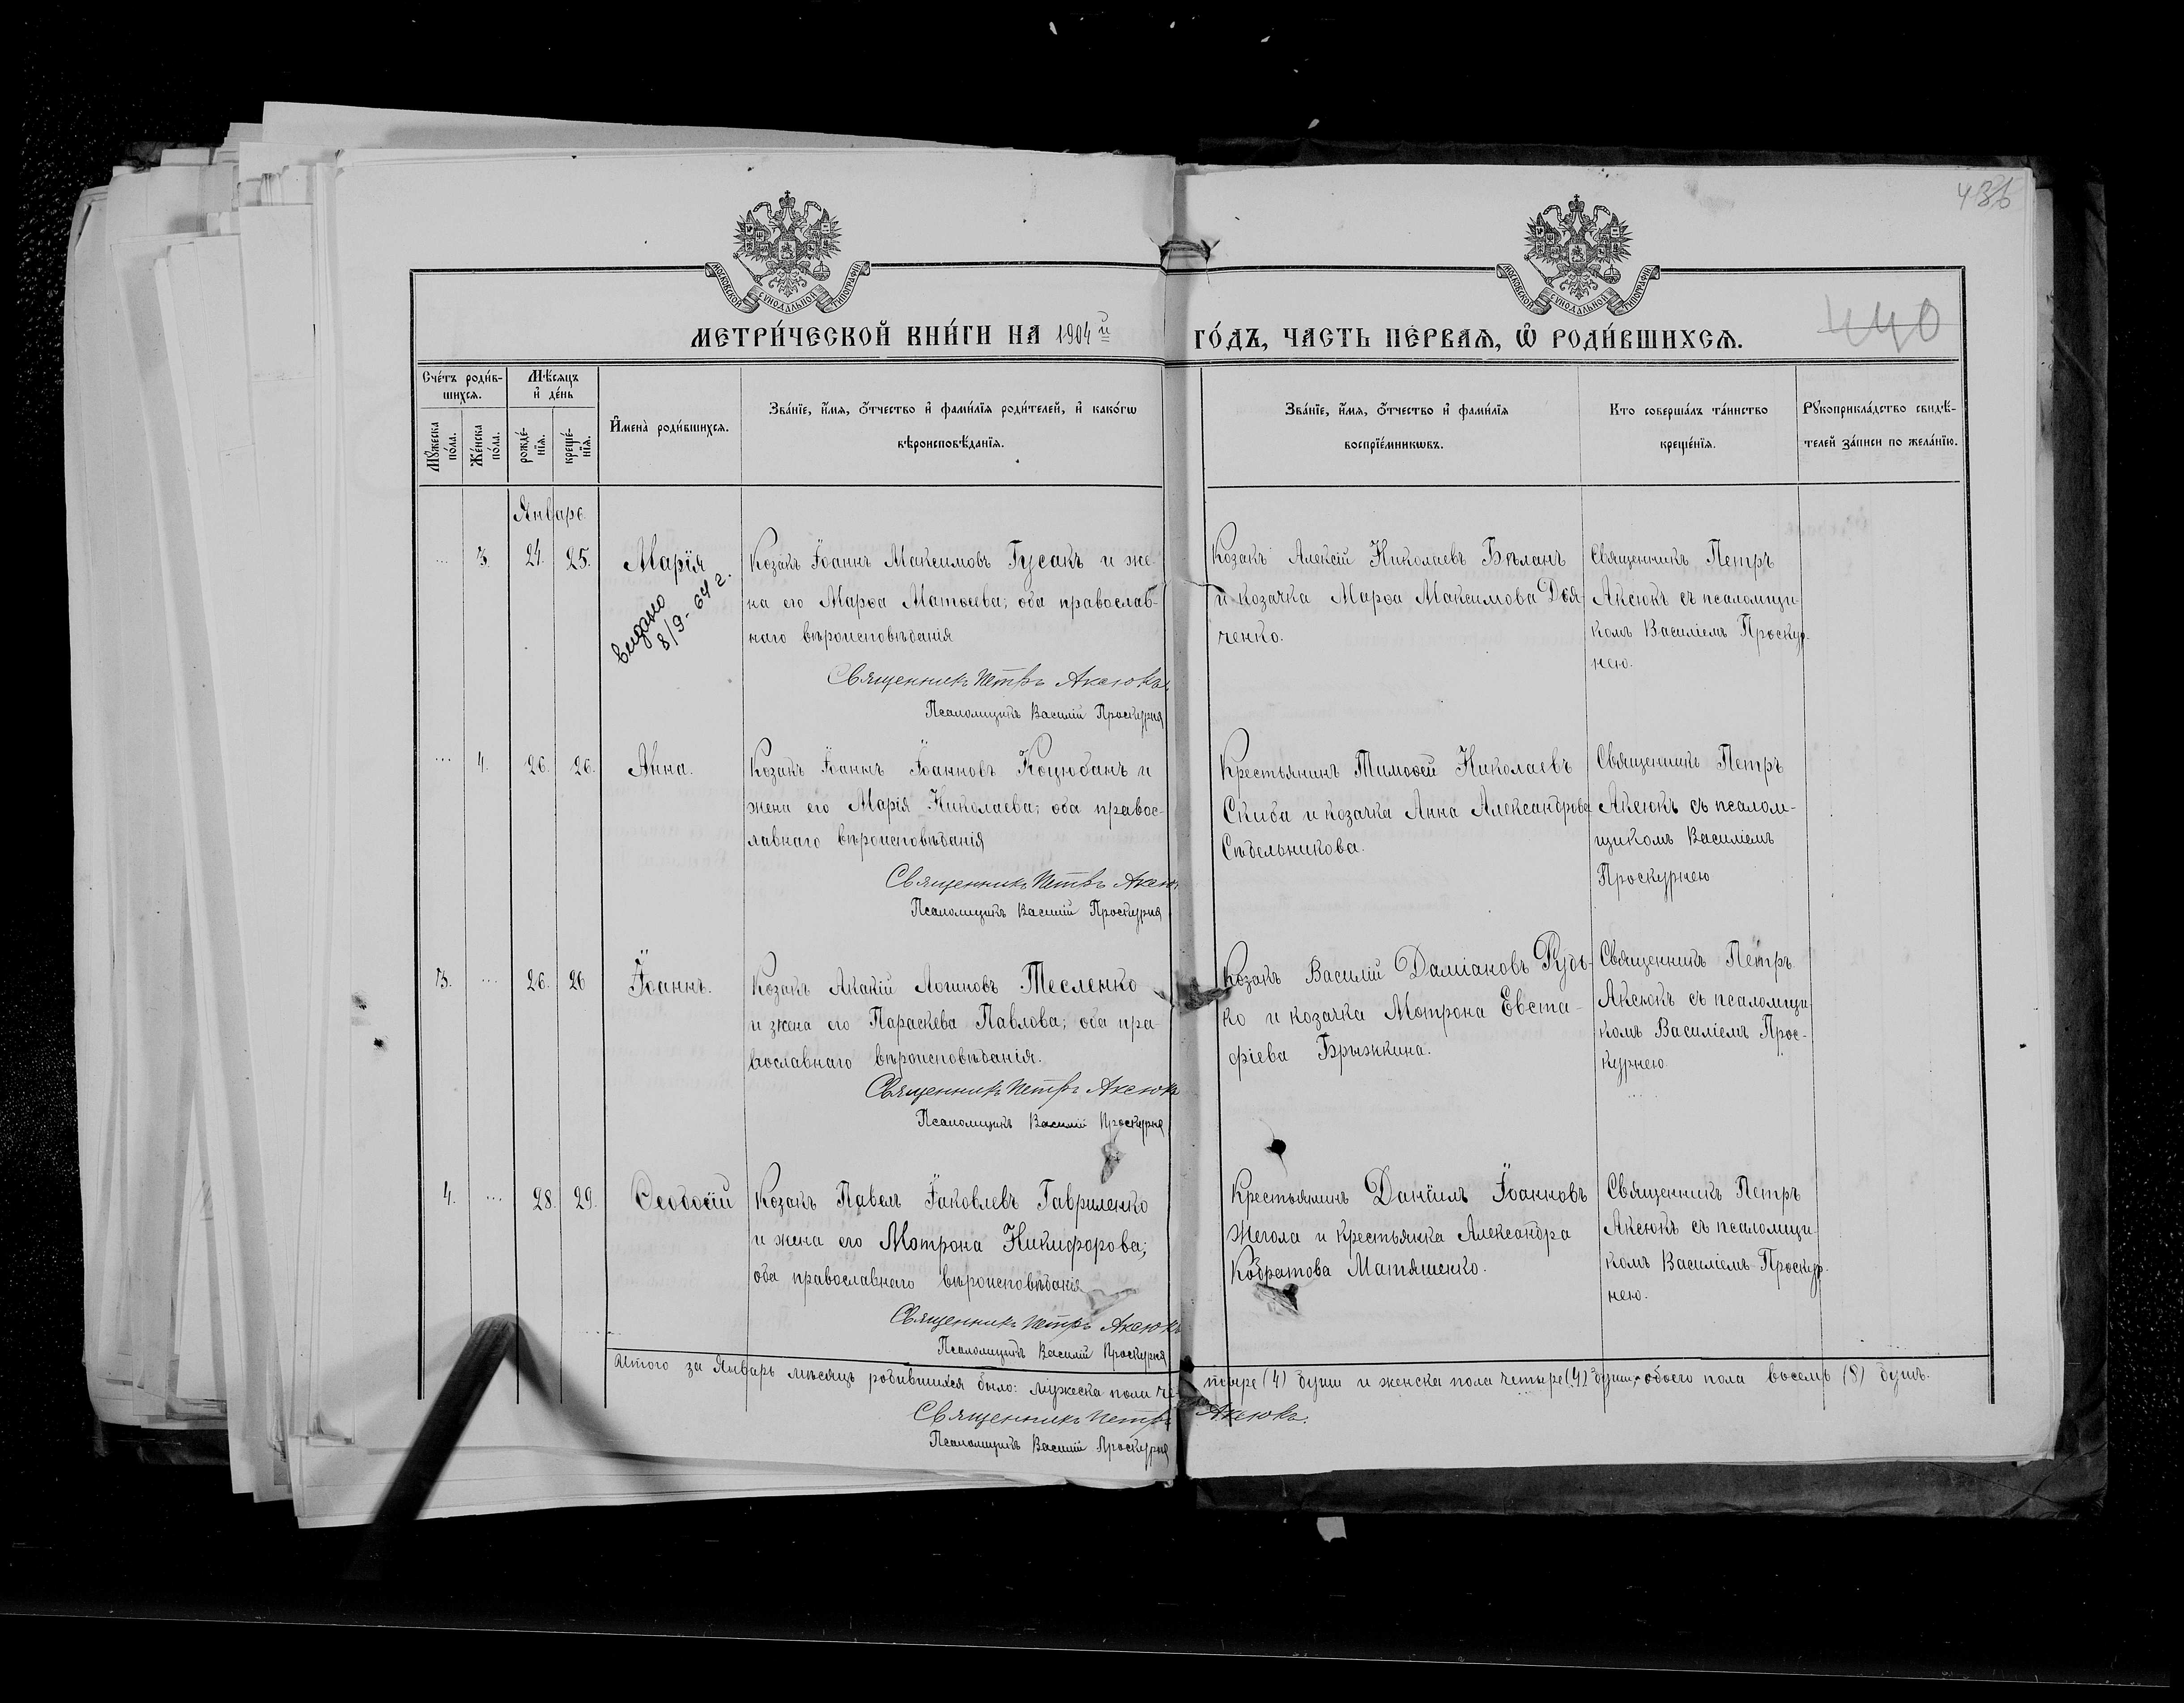 436
МОСКОВСКОЙ СУНОДАЛЬНОЙ ТИПОГРАФІИ
МОСКОВСКОЙ СУНОДАЛЬНОЙ ТИПОГРАФІИ
МЕТРИ́ЧЕСКОЙ КНИ́ГИ НА 1904й
ГО́ДЪ, ЧАСТЬ ПЕ́РВАѦ, Ѿ РОДИ́ВШИХСѦ.
440
Сче́тъ роди́в-
шихсѧ.
Мѣ́сѧцъ
и҆ де́нь
Мꙋ́жеска
по́ла.
Же́нска
по́ла.
рожде́-
нїѧ.
креще́-
нїѧ.
И҆мена̀ роди́вшихсѧ.
Зва́нїе, и҆́мѧ, ѻ҆́тчество и҆ фами́лїѧ роди́телей, и҆ како́гѡ
вѣроисповѣ́данїѧ.
Зва́нїе, и҆́мѧ, ѻ҆́тчество и҆ фами́лїѧ
воспрїе́мникѡвъ.
Кто соверша́лъ та́инство
креще́нїѧ.
Рꙋкоприкла́дство свидѣ́-
телей за́писи по жела́нїю.
Январь
... 3. 24. 25. Марія
видано
8/9-64 г.
Козакъ Іоаннъ Максимовъ Гусакъ и же-
на его Марѳа Матѳеева; оба православ-
наго вѣроисповѣданія
Священникъ Петръ Аксюкъ
Псаломщикъ Василій Проскурня
Козакъ Алексій Николаевъ Бѣланъ
и козачка Марѳа Максимова Дья-
ченко.
Священникъ Петръ
Аксюкъ съ псаломщи-
комъ Василіемъ Проскур-
нею.
... 4. 26. 26. Анна.
Козакъ Іоаннъ Іоанновъ Коцюбанъ и
жена его Марія Николаева; оба правос-
лавнаго вѣроисповѣданія
Священникъ Петръ Аксюк
Псаломщикъ Василій Проскурня
Крестьянинъ Тимоѳей Николаевъ
Скиба и козачка Анна Александрова
Сѣдельникова.
Священникъ Петръ
Аксюкъ съ псалом-
щикомъ Василіемъ
Проскурнею
3. ... 26. 26 Іоаннъ.
Козакъ Акакій Логиновъ Тесленко
и жена его Параскева Павлова; оба пра-
вославнаго вѣроисповѣданія.
Священникъ Петръ Аксюкъ
Псаломщикъ Василій Проскурня
Козакъ Василій Даміановъ Рудь-
ко и козачка Мотрона Евста-
фіева Брыжкина.
Священникъ Петръ
Аксюкъ съ псаломщи-
комъ Василіемъ Прос-
курнею.
4. ... 28. 29. Ѳеодосій
Козакъ Павелъ Іаковлевъ Гавриленко
и жена его Мотрона Никифорова;
оба православнаго вѣроисповѣданія
Священникъ Петръ Аксюкъ
Псаломщикъ Василій Проскурня
Крестьянинъ Даніилъ Іоанновъ
Жегола и крестьянка Александра
Кодратова Матяшенко.
Священникъ Петръ
Аксюкъ съ псаломщи-
комъ Василіемъ Проскур-
нею.
Итого за Январь мѣсяцъ родившихся было: мужеска пола че- тыре (4) души и женска пола четыре (4) души, обоего пола восемь (8) душъ.
Священникъ Петръ Аксюкъ.
Псаломщикъ Василій Проскурня